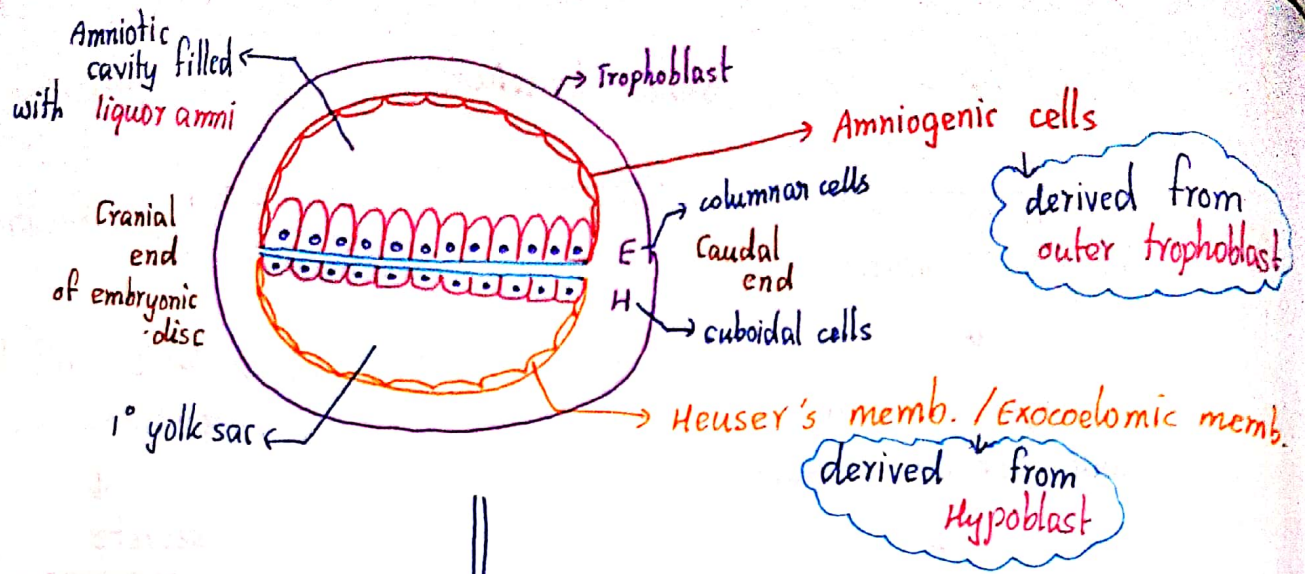 Amniotic
cavity filled
with liquor amni
Trophoblast
Amniogenic cells
derived from
outer trophoblast
columnar cells
Cranial
end
of embryonic
disc
E
Caudal
end
H
cuboidal cells
1° yolk sac
Heuser's memb. / Exocoelomic memb.
derived from
Hypoblast